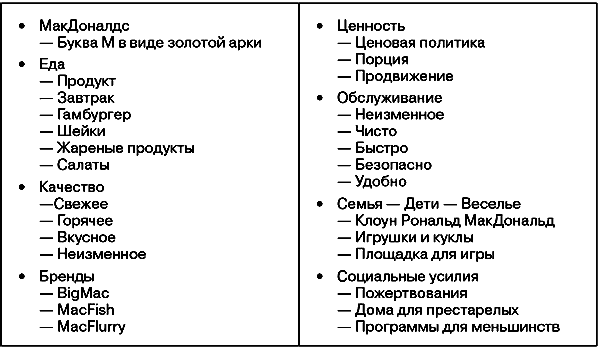 • МакДоналдс
— Буква М в виде золотой арки
• Еда
— Продукт
— Завтрак
— Гамбургер
— Шейки
— Жареные продукты
— Салаты
• Качество
—Свежее
— Горячее
— Вкусное
— Неизменное
• Бренды
— BigMac
— MacFish
— MacFlurry
• Ценность
— Ценовая политика
— Порция
— Продвижение
• Обслуживание
— Неизменное
— Чисто
— Быстро
— Безопасно
— Удобно
• Семья — Дети — Веселье
— Клоун Рональд МакДональд
— Игрушки и куклы
— Площадка для игры
• Социальные усилия
— Пожертвования
— Дома для престарелых
— Программы для меньшинств